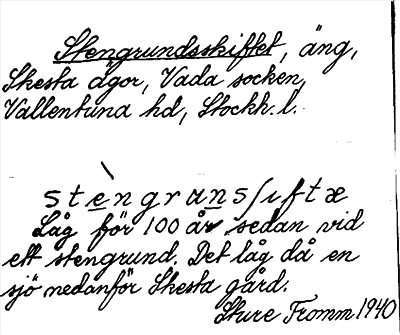 Stengrundsskiftet, äng,
Skesta ägor, Vada socken,
Vallentuna hd, Stockh. l.
stengransʃiftæ
Låg för 100 år sedan vid
ett stengrund. Det låg då en
sjö nedanför Skesta gård.
Sture Fromm 1940